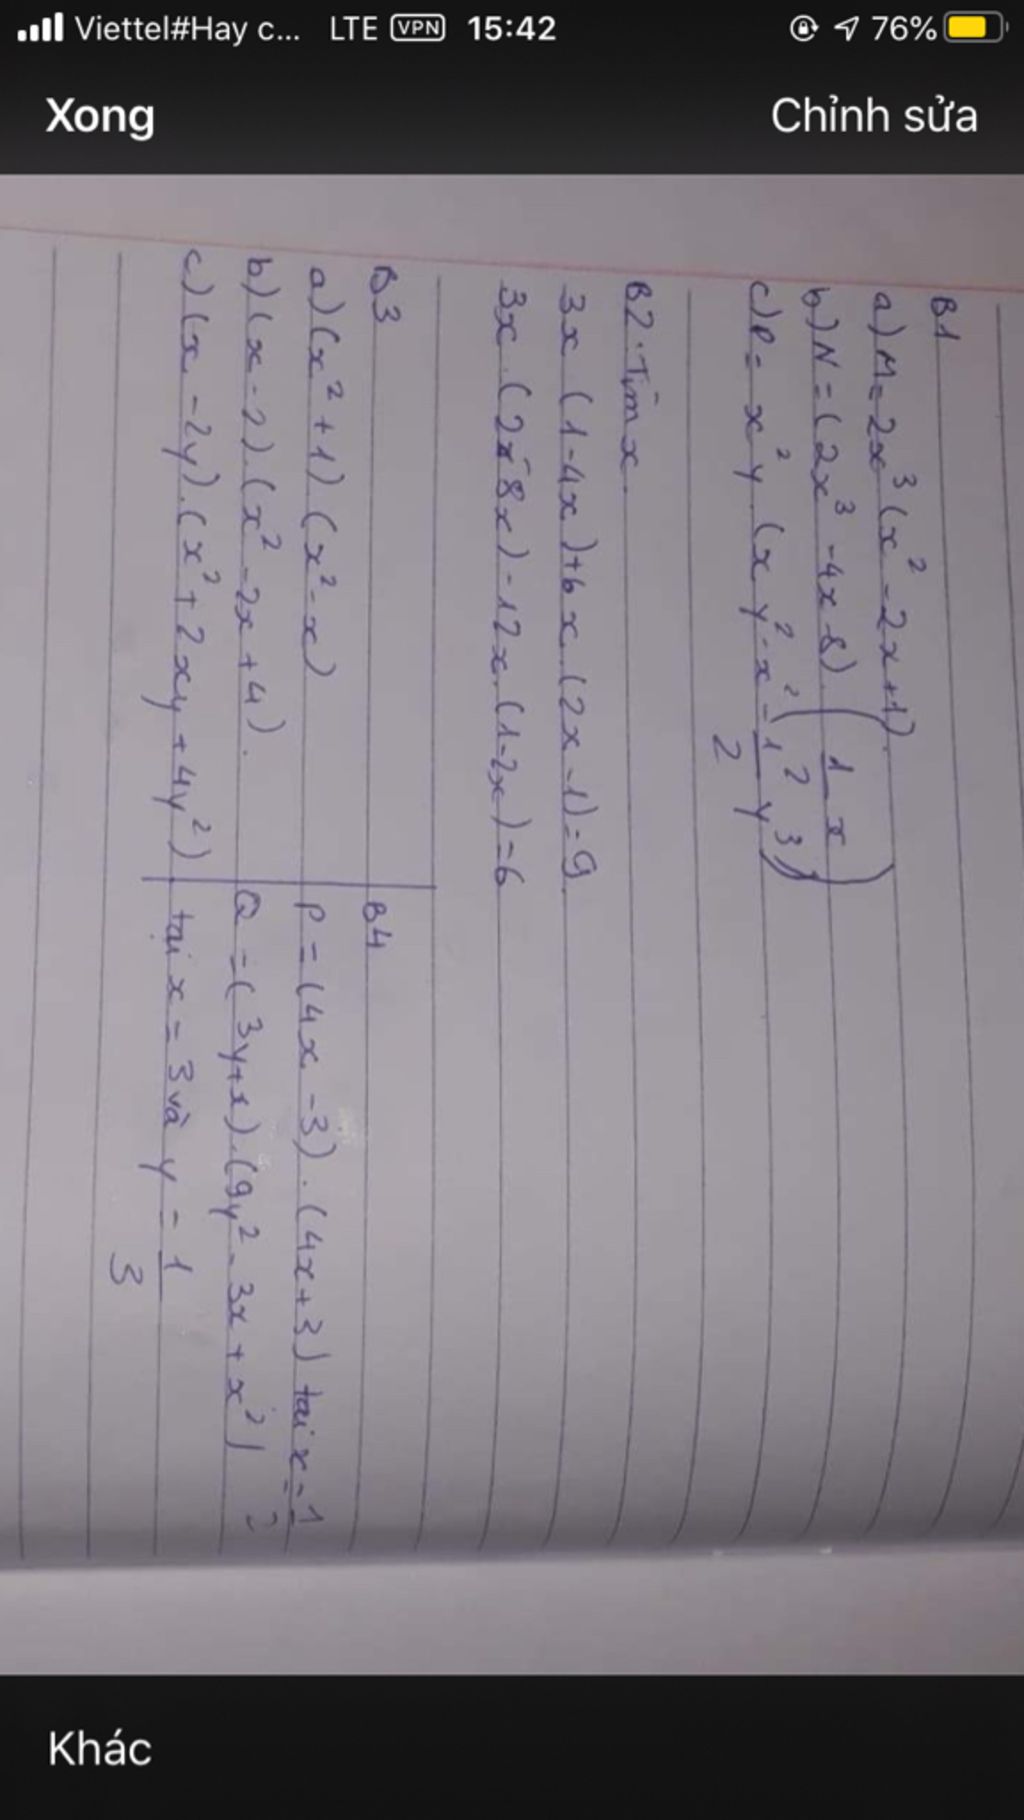 Viettel#Hay c... LTE VPN 15:42 76%
Xong Chỉnh sửa
B1
a) M = 2x³ (x² - 2x + 1).
b) N = (2x³ - 4x - 8) . (1/2 x)
c) P = x²y (xy² - x² - 1/2 y³)
B2. Tìm x.
3x (1 - 4x) + 6x . (2x - 1) = 9
3x . (2 - 8x) - 12x . (1 - 2x) = 6
B3
a) (x² + 1) . (x² - x)
b) (x - 2) . (x² - 2x + 4).
c) (x - 2y) . (x² + 2xy + 4y²)
B4
P = (4x - 3) . (4x + 3) tại x = 1/2
Q = (3y + x) . (9y² - 3x + x²)
tại x = 3 và y = 1/3
Khác